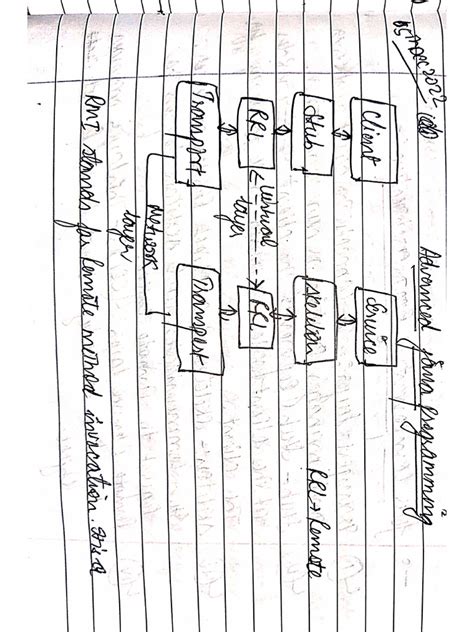 05th Dec 2022
Advanced Java Programming
Client
Service
Stub
Skeleton
RRL → Remote
RRL
Virtual
layer
RRL
Transport
Transport
Network
layer
RMI stands for Remote method invocation. It is a